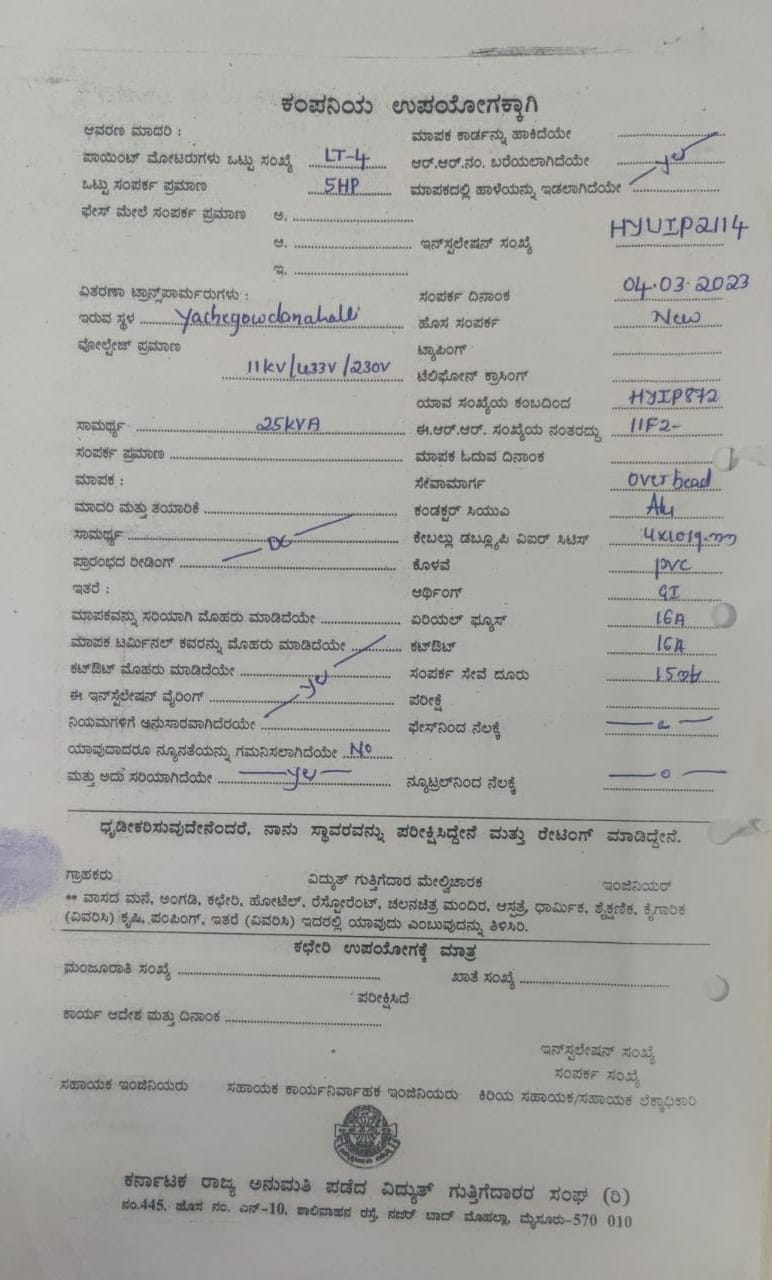 ಕಂಪನಿಯ ಉಪಯೋಗಕ್ಕಾಗಿ
ಆವರಣ ಮಾದರಿ : ಮಾಪಕ ಕಾರ್ಡನ್ನು ಹಾಕಿದೆಯೇ
ಪಾಯಿಂಟ್ ಮೋಟರುಗಳು ಒಟ್ಟು ಸಂಖ್ಯೆ LT-4 ಆರ್.ಆರ್.ನಂ. ಬರೆಯಲಾಗಿದೆಯೇ yes
ಒಟ್ಟು ಸಂಪರ್ಕ ಪ್ರಮಾಣ 5HP ಮಾಪಕದಲ್ಲಿ ಹಾಳೆಯನ್ನು ಇಡಲಾಗಿದೆಯೇ
ಫೇಸ್ ಮೇಲೆ ಸಂಪರ್ಕ ಪ್ರಮಾಣ ಅ.
ಆ. ಇನ್‌ಸ್ಟಲೇಷನ್ ಸಂಖ್ಯೆ HYUIP2114
ಇ.
ವಿತರಣಾ ಟ್ರಾನ್ಸ್‌ಪಾರ್ಮರುಗಳು : ಸಂಪರ್ಕ ದಿನಾಂಕ 04.03.2023
ಇರುವ ಸ್ಥಳ Yachegowdanahalli ಹೊಸ ಸಂಪರ್ಕ New
ವೋಲ್ಟೇಜ್ ಪ್ರಮಾಣ 11kV/433V/230V ಟ್ಯಾಪಿಂಗ್
ಟೆಲಿಫೋನ್ ಕ್ರಾಸಿಂಗ್
ಯಾವ ಸಂಖ್ಯೆಯ ಕಂಬದಿಂದ HYIP872
ಸಾಮರ್ಥ್ಯ 25KVA ಈ.ಆರ್.ಆರ್. ಸಂಖ್ಯೆಯ ನಂತರದ್ದು 11F2-
ಸಂಪರ್ಕ ಪ್ರಮಾಣ ಮಾಪಕ ಓದುವ ದಿನಾಂಕ
ಮಾಪಕ : ಸೇವಾಮಾರ್ಗ overhead
ಮಾದರಿ ಮತ್ತು ತಯಾರಿಕೆ ಕಂಡಕ್ಟರ್ ಸಿಯುಎ Alu
ಸಾಮರ್ಥ್ಯ ಕೇಬಲ್ಲು ಡಬ್ಲ್ಯೂಪಿ ವಿಐರ್ ಸಿಟಿಸ್ 4x10sq.mm
ಪ್ರಾರಂಭದ ರೀಡಿಂಗ್ ಕೊಳವೆ PVC
ಇತರೆ : ಆರ್ಥಿಂಗ್ GI
ಮಾಪಕವನ್ನು ಸರಿಯಾಗಿ ಮೊಹರು ಮಾಡಿದೆಯೇ ಏರಿಯಲ್ ಫ್ಯೂಸ್ 16A
ಮಾಪಕ ಟರ್ಮಿನಲ್ ಕವರನ್ನು ಮೊಹರು ಮಾಡಿದೆಯೇ ಕಟ್‌ಔಟ್ 16A
ಕಟ್‌ಔಟ್ ಮೊಹರು ಮಾಡಿದೆಯೇ yes ಸಂಪರ್ಕ ಸೇವೆ ದೂರು
ಈ ಇನ್‌ಸ್ಟೆಲೇಷನ್ ವೈರಿಂಗ್ ಪರೀಕ್ಷೆ
ನಿಯಮಗಳಿಗೆ ಅನುಸಾರವಾಗಿದೆರಯೇ ಫೇಸ್‌ನಿಂದ ನೆಲಕ್ಕೆ
ಯಾವುದಾದರೂ ನ್ಯೂನತೆಯನ್ನು ಗಮನಿಸಲಾಗಿದೆಯೇ No
ಮತ್ತು ಅದು ಸರಿಯಾಗಿದೆಯೇ yes ನ್ಯೂಟ್ರಲ್‌ನಿಂದ ನೆಲಕ್ಕೆ
ಧೃಡೀಕರಿಸುವುದೇನೆಂದರೆ, ನಾನು ಸ್ಥಾವರವನ್ನು ಪರೀಕ್ಷಿಸಿದ್ದೇನೆ ಮತ್ತು ರೇಟಿಂಗ್ ಮಾಡಿದ್ದೇನೆ.
ಗ್ರಾಹಕರು ವಿದ್ಯುತ್ ಗುತ್ತಿಗೆದಾರ ಮೇಲ್ವಿಚಾರಕ ಇಂಜಿನಿಯರ್
** ವಾಸದ ಮನೆ, ಅಂಗಡಿ, ಕಛೇರಿ, ಹೋಟೆಲ್, ರೆಸ್ಟೋರೆಂಟ್, ಚಲನಚಿತ್ರ ಮಂದಿರ, ಆಸ್ಪತ್ರೆ, ಧಾರ್ಮಿಕ, ಶೈಕ್ಷಣಿಕ, ಕೈಗಾರಿಕ
(ವಿವರಿಸಿ) ಕೃಷಿ, ಪಂಪಿಂಗ್, ಇತರೆ (ವಿವರಿಸಿ) ಇದರಲ್ಲಿ ಯಾವುದು ಎಂಬುವುದನ್ನು ತಿಳಿಸಿರಿ.
ಕಛೇರಿ ಉಪಯೋಗಕ್ಕೆ ಮಾತ್ರ
ಮಂಜೂರಾತಿ ಸಂಖ್ಯೆ ಖಾತೆ ಸಂಖ್ಯೆ
ಪರೀಕ್ಷಿಸಿದೆ
ಕಾರ್ಯ ಆದೇಶ ಮತ್ತು ದಿನಾಂಕ
ಇನ್‌ಸ್ಟಲೇಷನ್ ಸಂಖ್ಯೆ
ಸಂಪರ್ಕ ಸಂಖ್ಯೆ
ಸಹಾಯಕ ಇಂಜಿನಿಯರು ಸಹಾಯಕ ಕಾರ್ಯನಿರ್ವಾಹಕ ಇಂಜಿನಿಯರು ಕಿರಿಯ ಸಹಾಯಕ/ಸಹಾಯಕ ಲೆಕ್ಕಾಧಿಕಾರಿ
ಕರ್ನಾಟಕ ರಾಜ್ಯ ಅನುಮತಿ ಪಡೆದ ವಿದ್ಯುತ್ ಗುತ್ತಿಗೆದಾರರ ಸಂಘ (ರಿ)
ನಂ.445, ಹೊಸ ನಂ. ಎನ್-10, ಶಾಲಿವಾಹನ ರಸ್ತೆ, ನಜರ್ ಬಾದ್ ಮೊಹಲ್ಲಾ, ಮೈಸೂರು-570 010